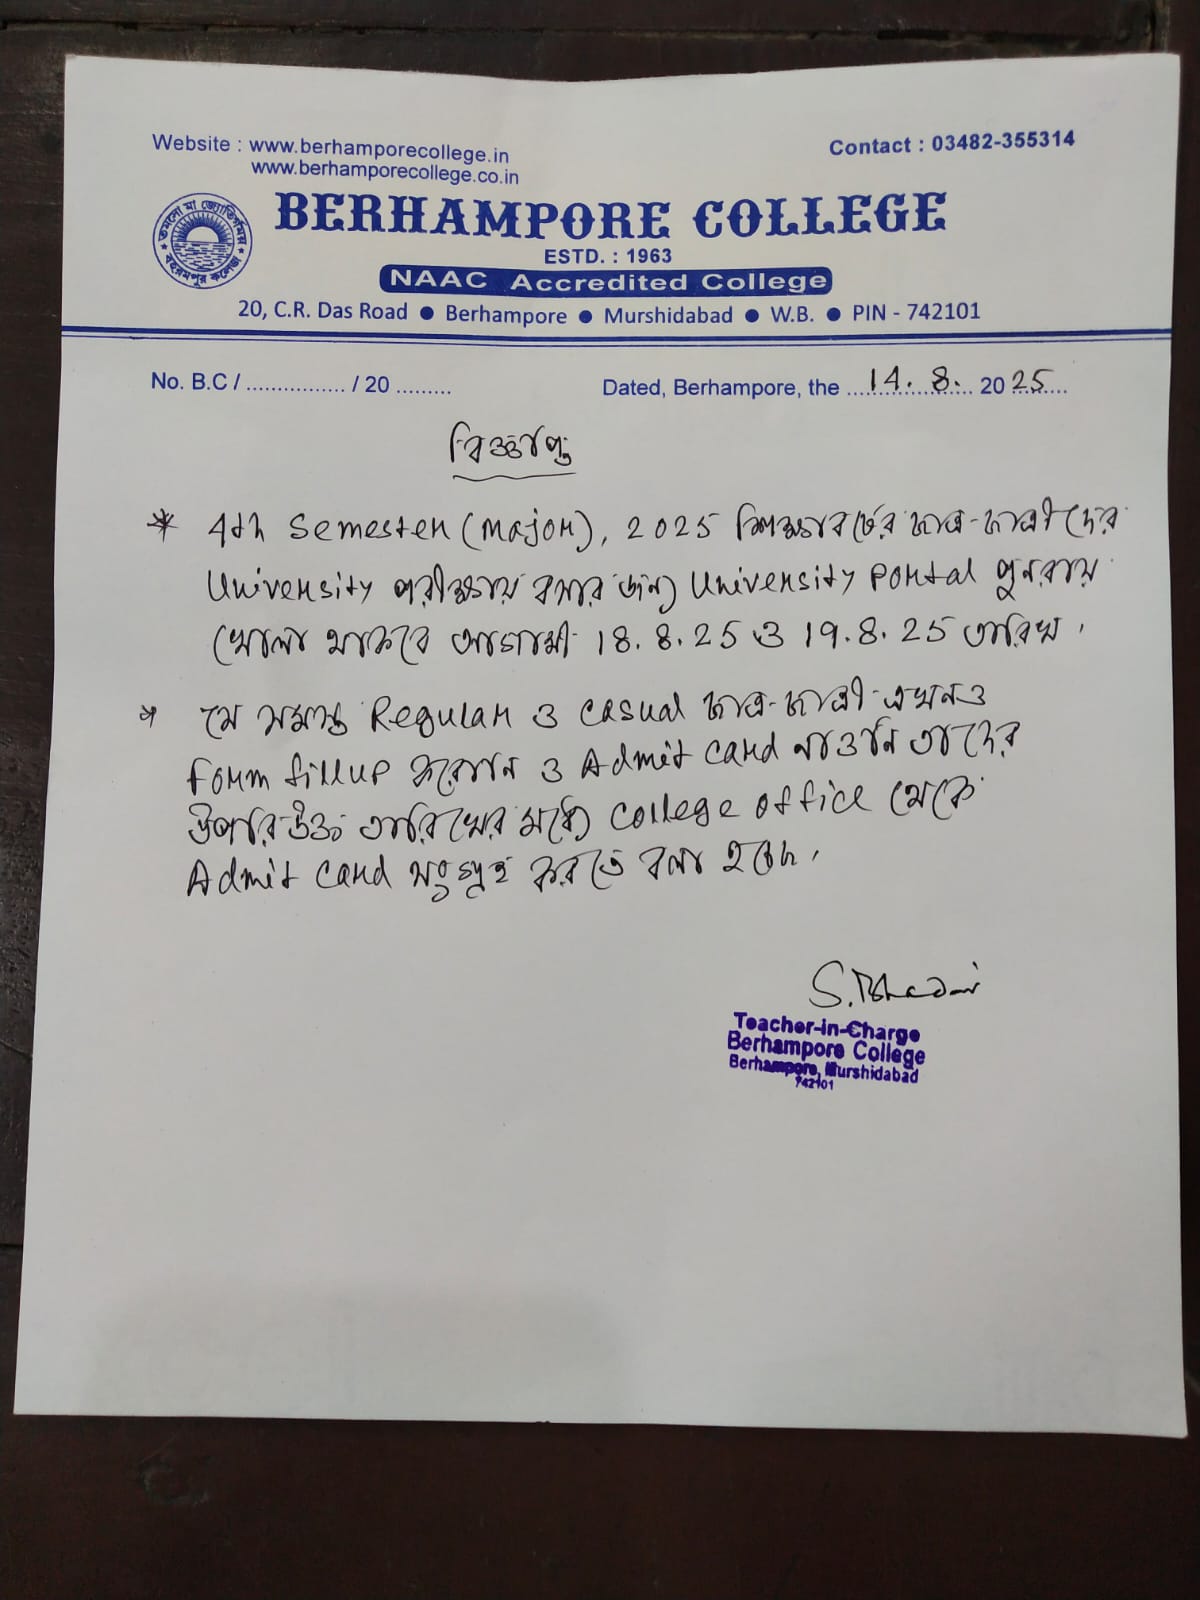 Website : www.berhamporecollege.in
www.berhamporecollege.co.in
Contact : 03482-355314
তমসো মা জ্যোতির্গময়
বহরমপুর কলেজ
BERHAMPORE COLLEGE
ESTD. : 1963
NAAC Accredited College
20, C.R. Das Road ● Berhampore ● Murshidabad ● W.B. ● PIN - 742101
No. B.C / ................ / 20 .........
Dated, Berhampore, the 14. 8. 2025
বিজ্ঞপ্তি
* 4th Semester (Major), 2025 শিক্ষাবর্ষের ছাত্র-ছাত্রীদের
University পরীক্ষায় বসার জন্য University Portal পুনরায়
খোলা থাকবে আগামী 18. 8. 25 ও 19. 8. 25 তারিখ ।
* যে সমস্ত Regular ও Casual ছাত্র-ছাত্রী এখনও
Form fillup করেনি ও Admit Card নাওনি তাদের
উপরিউক্ত তারিখের মধ্যে College office থেকে
Admit Card সংগ্রহ করতে বলা হচ্ছে ।
S. Bhadri
Teacher-in-Charge
Berhampore College
Berhampore, Murshidabad
742101